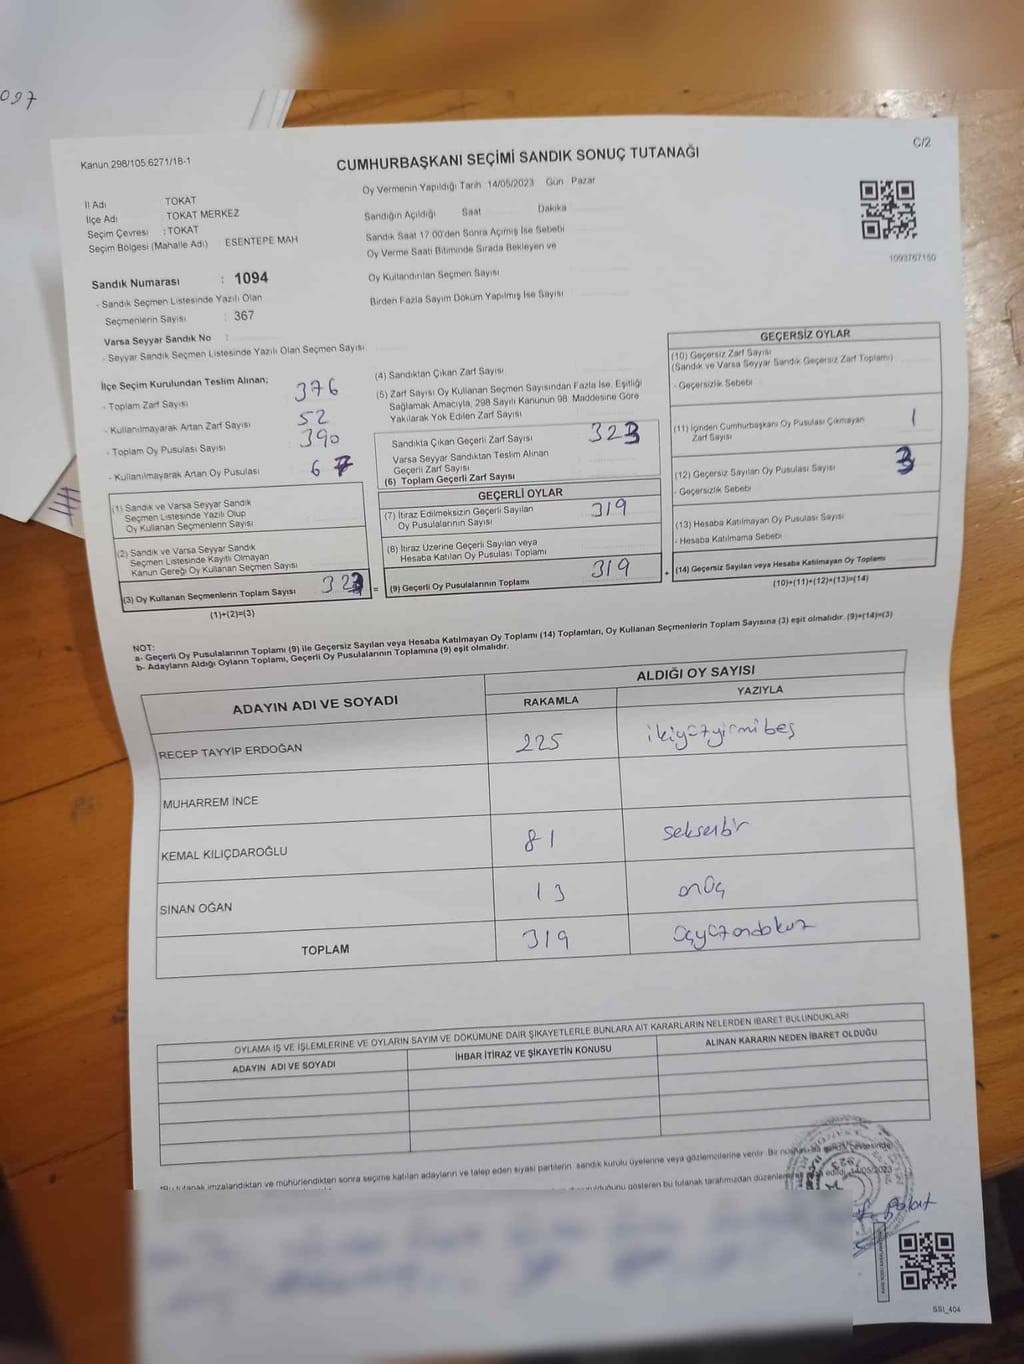 097
Kanun.298/105,6271/18-1
C/2
CUMHURBAŞKANI SEÇİMİ SANDIK SONUÇ TUTANAĞI
Oy Vermenin Yapıldığı Tarih 14/05/2023 Gün Pazar
İl Adı TOKAT
İlçe Adı TOKAT MERKEZ
Seçim Çevresi : TOKAT
Seçim Bölgesi (Mahalle Adı) : ESENTEPE MAH
Sandığın Açıldığı Saat Dakika
Sandık Saat 17:00'den Sonra Açılmış İse Sebebi
Oy Verme Saati Bitiminde Sırada Bekleyen ve
Oy Kullandırılan Seçmen Sayısı
Birden Fazla Sayım Döküm Yapılmış İse Sayısı
1093767150
Sandık Numarası : 1094
- Sandık Seçmen Listesinde Yazılı Olan
Seçmenlerin Sayısı : 367
Varsa Seyyar Sandık No :
- Seyyar Sandık Seçmen Listesinde Yazılı Olan Seçmen Sayısı
İlçe Seçim Kurulundan Teslim Alınan;
- Toplam Zarf Sayısı 376
- Kullanılmayarak Artan Zarf Sayısı 52
- Toplam Oy Pusulası Sayısı 390
- Kullanılmayarak Artan Oy Pusulası 67
(1) Sandık ve Varsa Seyyar Sandık
Seçmen Listesinde Yazılı Olup
Oy Kullanan Seçmenlerin Sayısı
(2) Sandık ve Varsa Seyyar Sandık
Seçmen Listesinde Kayıtlı Olmayan
Kanun Gereği Oy Kullanan Seçmen Sayısı
(3) Oy Kullanan Seçmenlerin Toplam Sayısı 323 =
(1)+(2)=(3)
(4) Sandıktan Çıkan Zarf Sayısı
(5) Zarf Sayısı Oy Kullanan Seçmen Sayısından Fazla İse, Eşitliği
Sağlamak Amacıyla, 298 Sayılı Kanunun 98. Maddesine Göre
Yakılarak Yok Edilen Zarf Sayısı
Sandıkta Çıkan Geçerli Zarf Sayısı 323
Varsa Seyyar Sandıktan Teslim Alınan
Geçerli Zarf Sayısı
(6) Toplam Geçerli Zarf Sayısı
GEÇERLİ OYLAR
(7) İtiraz Edilmeksizin Geçerli Sayılan
Oy Pusulalarının Sayısı 319
(8) İtiraz Üzerine Geçerli Sayılan veya
Hesaba Katılan Oy Pusulası Toplamı
(9) Geçerli Oy Pusulalarının Toplamı 319 +
GEÇERSİZ OYLAR
(10) Geçersiz Zarf Sayısı
(Sandık ve Varsa Seyyar Sandık Geçersiz Zarf Toplamı)
- Geçersizlik Sebebi
(11) İçinden Cumhurbaşkanı Oy Pusulası Çıkmayan
Zarf Sayısı 1
(12) Geçersiz Sayılan Oy Pusulası Sayısı 3
- Geçersizlik Sebebi
(13) Hesaba Katılmayan Oy Pusulası Sayısı
- Hesaba Katılmama Sebebi
(14) Geçersiz Sayılan veya Hesaba Katılmayan Oy Toplamı
(10)+(11)+(12)+(13)=(14)
NOT:
a- Geçerli Oy Pusulalarının Toplamı (9) ile Geçersiz Sayılan veya Hesaba Katılmayan Oy Toplamı (14) Toplamları, Oy Kullanan Seçmenlerin Toplam Sayısına (3) eşit olmalıdır. (9)+(14)=(3)
b- Adayların Aldığı Oyların Toplamı, Geçerli Oy Pusulalarının Toplamına (9) eşit olmalıdır.
ADAYIN ADI VE SOYADI ALDIĞI OY SAYISI
RAKAMLA YAZIYLA
RECEP TAYYİP ERDOĞAN 225 ikiyüzyirmibeş
MUHARREM İNCE
KEMAL KILIÇDAROĞLU 81 seksenbir
SİNAN OĞAN 13 onüç
TOPLAM 319 üçyüzondokuz
OYLAMA İŞ VE İŞLEMLERİNE VE OYLARIN SAYIM VE DÖKÜMÜNE DAİR ŞİKAYETLERLE BUNLARA AİT KARARLARIN NELERDEN İBARET BULUNDUKLARI
ADAYIN ADI VE SOYADI İHBAR İTİRAZ VE ŞİKAYETİN KONUSU ALINAN KARARIN NEDEN İBARET OLDUĞU
*Bu tutanak imzalandıktan ve mühürlendikten sonra seçime katılan adayların ve talep eden siyasi partilerin sandık kurulu üyelerine veya gözlemcilerine verilir. Bir
gösteren bu tutanak tarafımızdan 14/05/2023
SSI_404